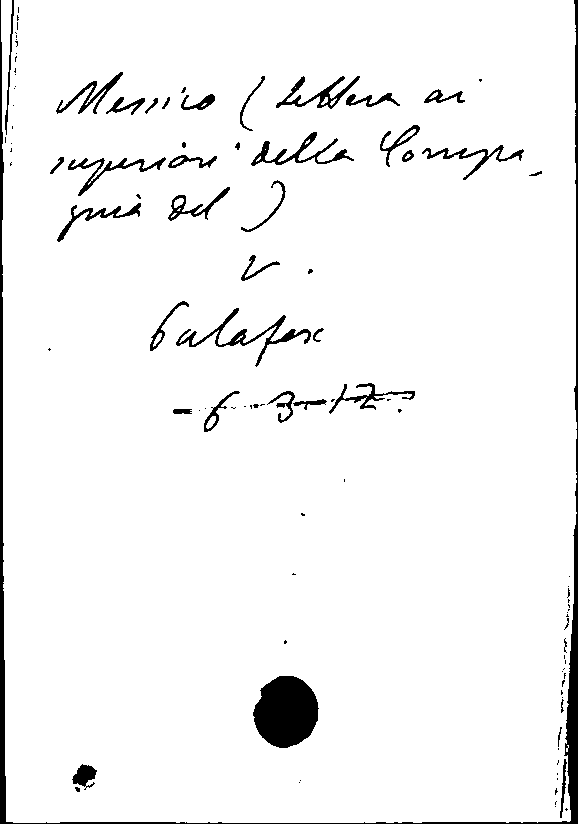 Messico (Lettera ai
superiori della Compa-
gnia del)
V.
Palafox
6-3-12.